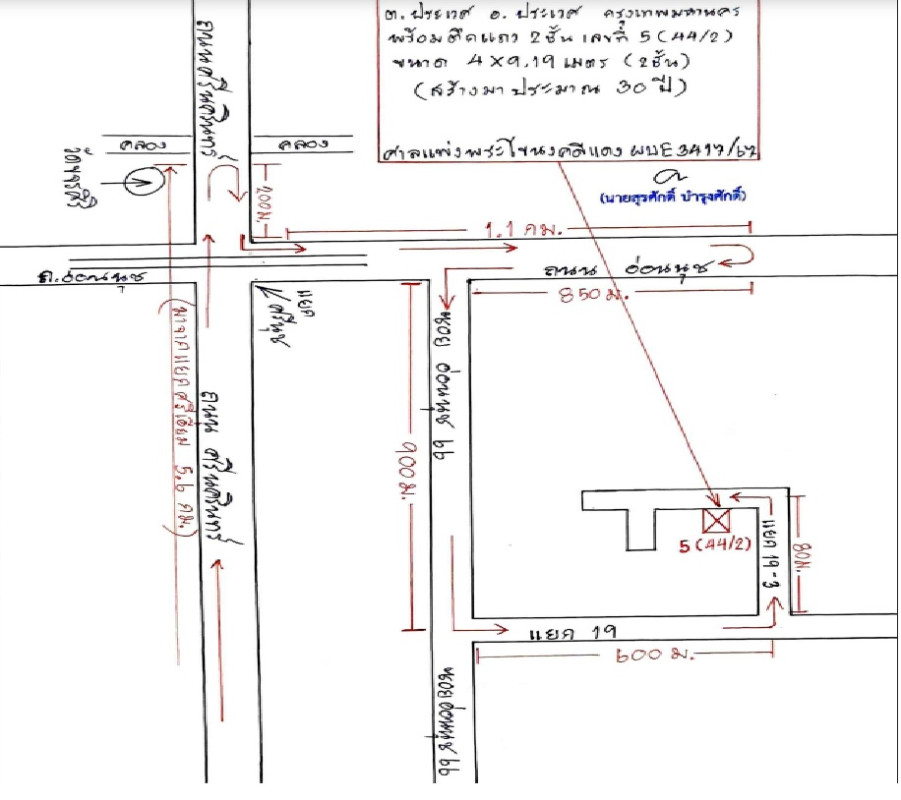 ต. ประเวศ อ. ประเวศ กรุงเทพมหานคร
พร้อมตึกแถว 2 ชั้น เลขที่ 5 (44/2)
ขนาด 4 x 9.19 เมตร (2 ชั้น)
(สร้างมาประมาณ 30 ปี)
ศาลแพ่งพระโขนงคดีแดง ผบE3417/67
(นายสุรศักดิ์ บำรุงศักดิ์)
ถนนศรีนครินทร์
คลอง
คลอง
200 ม.
1.1 กม.
ถ.อ่อนนุช
ถนน อ่อนนุช
850 ม.
แยก
ศรีนุช
(มาจากแยกศรีเอี่ยม 5.6 กม.)
ถนน ศรีนครินทร์
ซอย อ่อนนุช 66
900 ม.
5 (44/2)
แยก 19-3
80 ม.
แยก 19
600 ม.
ซอยอ่อนนุช 66